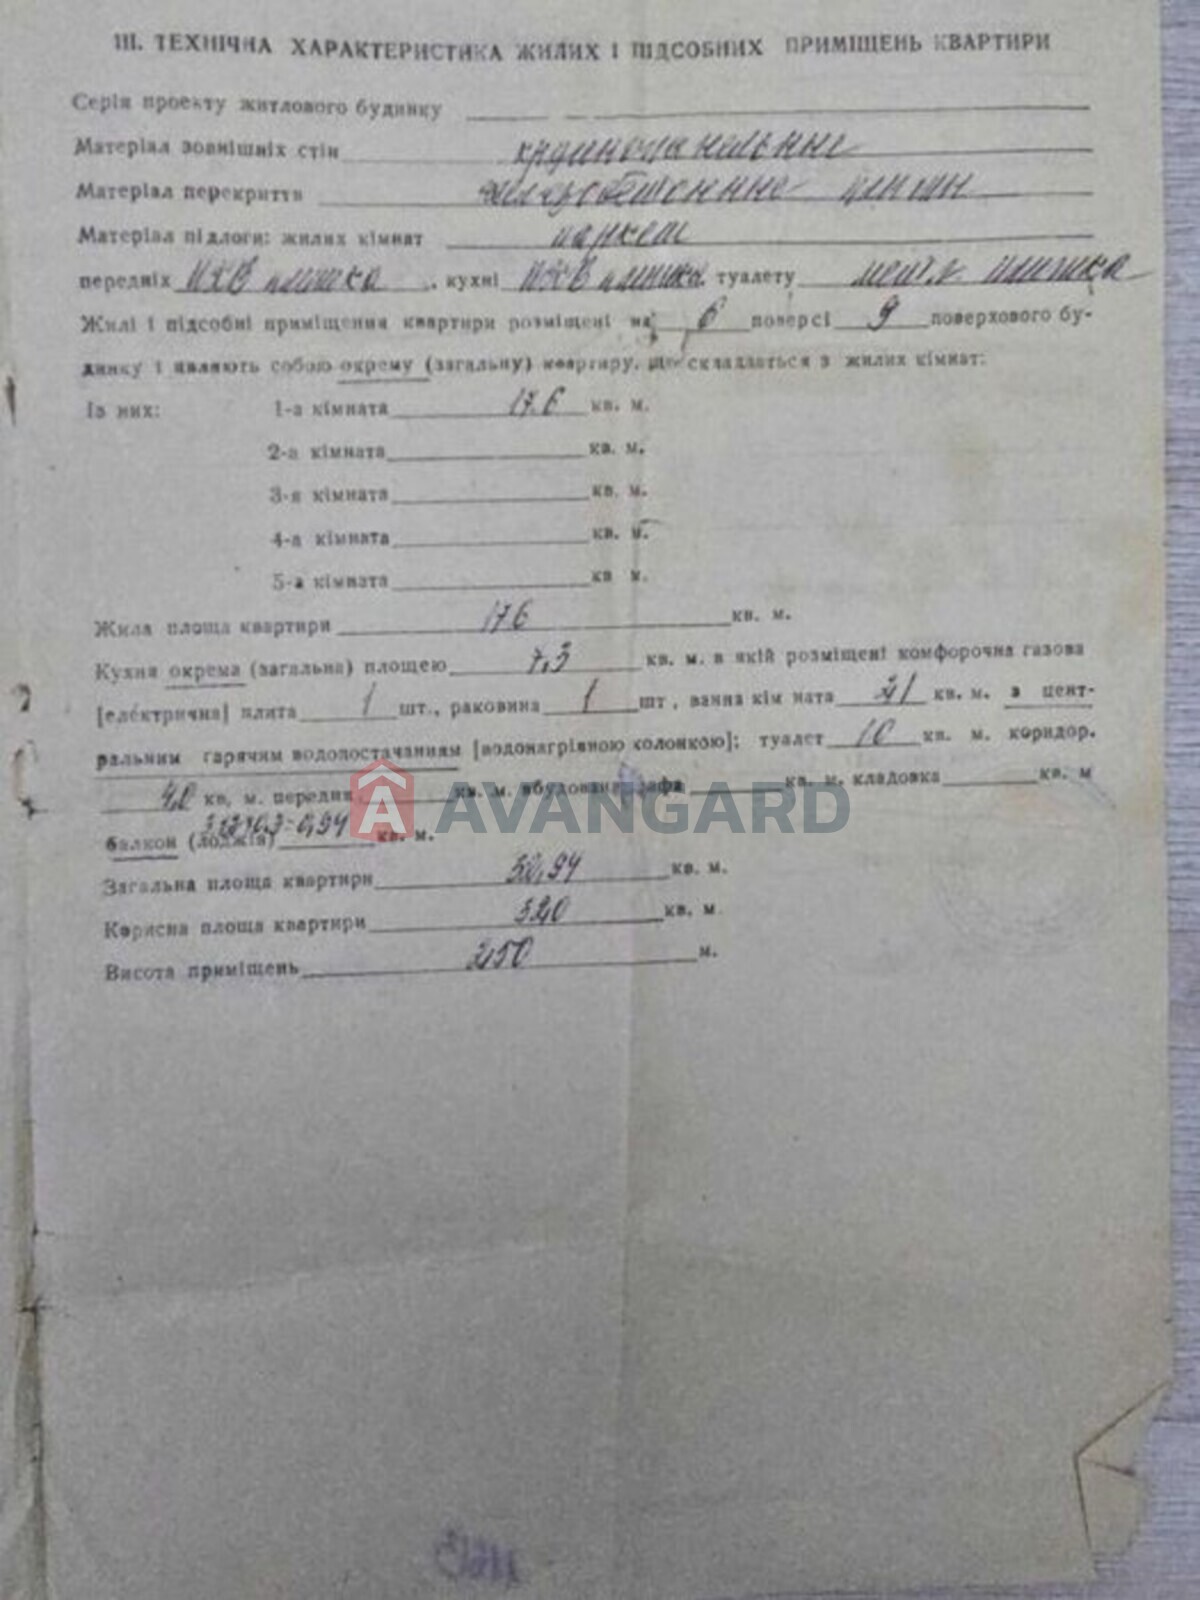 III. ТЕХНІЧНА ХАРАКТЕРИСТИКА ЖИЛИХ І ПІДСОБНИХ ПРИМІЩЕНЬ КВАРТИРИ
Серія проекту житлового будинку
Матеріал зовнішніх стін крупнопанельные
Матеріал перекриття железобетонные плиты
Матеріал підлоги: жилих кімнат паркет
передніх ПХВ плитка, кухні ПХВ плитка, туалету плитка
Жилі і підсобні приміщення квартири розміщені на 6 поверсі 9 поверхового бу-
динку і являють собою окрему (загальну) квартиру, що складається з жилих кімнат:
Із них: 1-а кімната 17.6 кв. м.
2-а кімната кв. м.
3-я кімната кв. м.
4-а кімната кв. м.
5-а кімната кв м.
Жила площа квартири 17.6 кв. м.
Кухня окрема (загальна) площею 7,3 кв. м. в якій розміщені комфорочна газова
[електрична] плита 1 шт., раковина 1 шт, ванна кімната 2,1 кв. м. з цент-
ральним гарячим водопостачанням [водонагрівною колонкою]; туалет 1,0 кв. м. коридор.
4,0 кв, м. передня кв. м. вбудована шафа кв. м. кладовка кв. м
балкон (лоджія) 0,94 кв. м.
Загальна площа квартири 32,94 кв. м.
Корисна площа квартири 32,0 кв. м
Висота приміщень 2,50 м.
AVANGARD